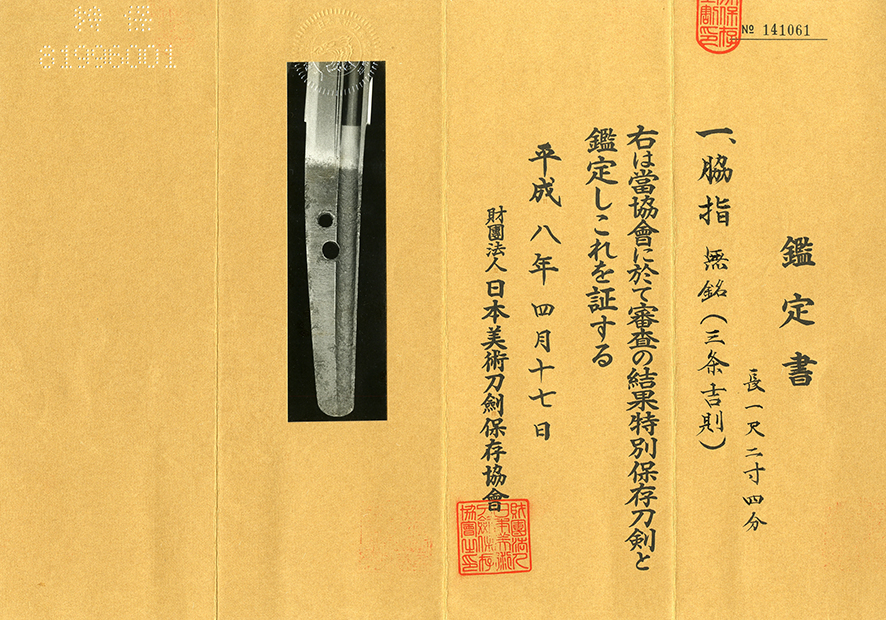 № 141061
鑑定書
一、脇指 無銘(三条吉則)
長一尺二寸四分
右は當協會に於て審査の結果特別保存刀剣と
鑑定しこれを証する
平成八年四月十七日
財團法人日本美術刀劍保存協會
財團法人
日本美術
刀劍保存
協會之印
特保
81996001